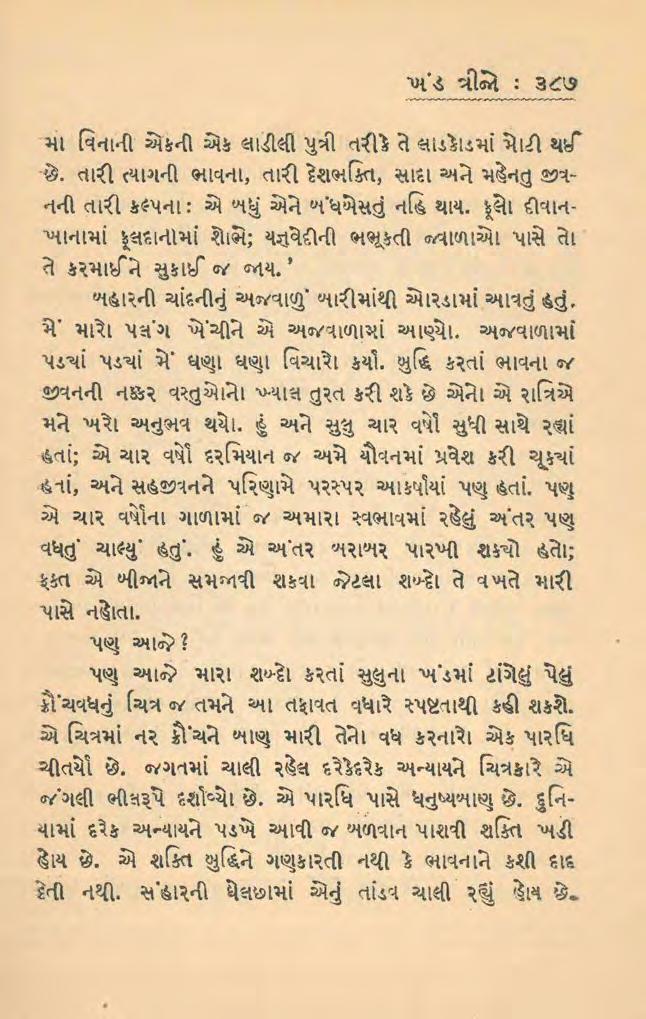 ખંડ ત્રીજો : ૩૮૭
મા વિનાની એકની એક લાડીલી પુત્રી તરીકે તે લાડકોડમાં મોટી થઈ
છે. તારી ત્યાગની ભાવના, તારી દેશભક્તિ, સાદા અને મહેનતુ જીવ-
નની તારી કલ્પના: એ બધું એને બંધબેસતું નહિ થાય. ફૂલો દીવાન-
ખાનામાં ફૂલદાનીમાં શોભે; યજ્ઞવેદીની ભભૂકતી જ્વાળાઓ પાસે તો
તે કરમાઈને સુકાઈ જ જાય.’
બહારની ચાંદનીનું અજવાળું બારીમાંથી ઓરડામાં આવતું હતું.
મેં મારો પલંગ ખેંચીને એ અજવાળામાં આણ્યો. અજવાળામાં
પડચાં પડચાં મેં ઘણા ઘણા વિચારો કર્યાં. બુદ્ધિ કરતાં ભાવના જ
જીવનની નક્કર વસ્તુઓનો ખ્યાલ તુરત કરી શકે છે એનો એ રાત્રિએ
મને ખરો અનુભવ થયો. હું અને સુલુ ચાર વર્ષો સુધી સાથે રહ્યાં
હતાં; એ ચાર વર્ષો દરમિયાન જ અમે યૌવનમાં પ્રવેશ કરી ચૂકચાં
હતાં, અને સહજીવનને પરિણામે પરસ્પર આકર્ષાયાં પણ હતાં. પણ
એ ચાર વર્ષોના ગાળામાં જ અમારા સ્વભાવમાં રહેલું અંતર પણ
વધતું ચાલ્યું હતું. હું એ અંતર બરાબર પારખી શકચો હતો;
ફક્ત એ બીજાને સમજાવી શકવા જેટલા શબ્દો તે વખતે મારી
પાસે નહોતા.
પણ આજે?
પણ આજે મારા શબ્દો કરતાં સુલુના ખંડમાં ટાંગેલું પેલું
ક્રૌંચવધનું ચિત્ર જ તમને આ તફાવત વધારે સ્પષ્ટતાથી કહી શકશે.
એ ચિત્રમાં નર ક્રૌંચને બાણ મારી તેનો વધ કરનારો એક પારધિ
ચીતર્યો છે. જગતમાં ચાલી રહેલ દરેકેદરેક અન્યાયને ચિત્રકારે એ
જંગલી ભીલરૂપે દર્શાવ્યો છે. એ પારધિ પાસે ધનુષ્યબાણ છે. દુનિ-
યામાં દરેક અન્યાયને પડખે આવી જ બળવાન પાશવી શક્તિ ખડી
હોય છે. એ શક્તિ બુદ્ધિને ગણકારતી નથી કે ભાવનાને કશી દાદ
દેતી નથી. સંહારની ઘેલછામાં એનું તાંડવ ચાલી રહ્યું હોય છે.